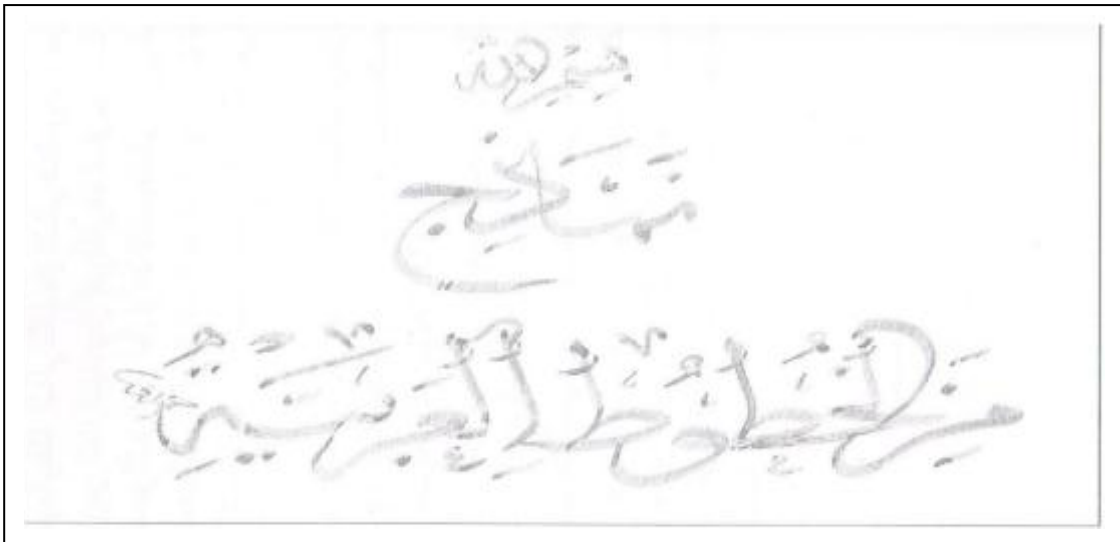 بسم الله
نماذج
من الخطوط العربية